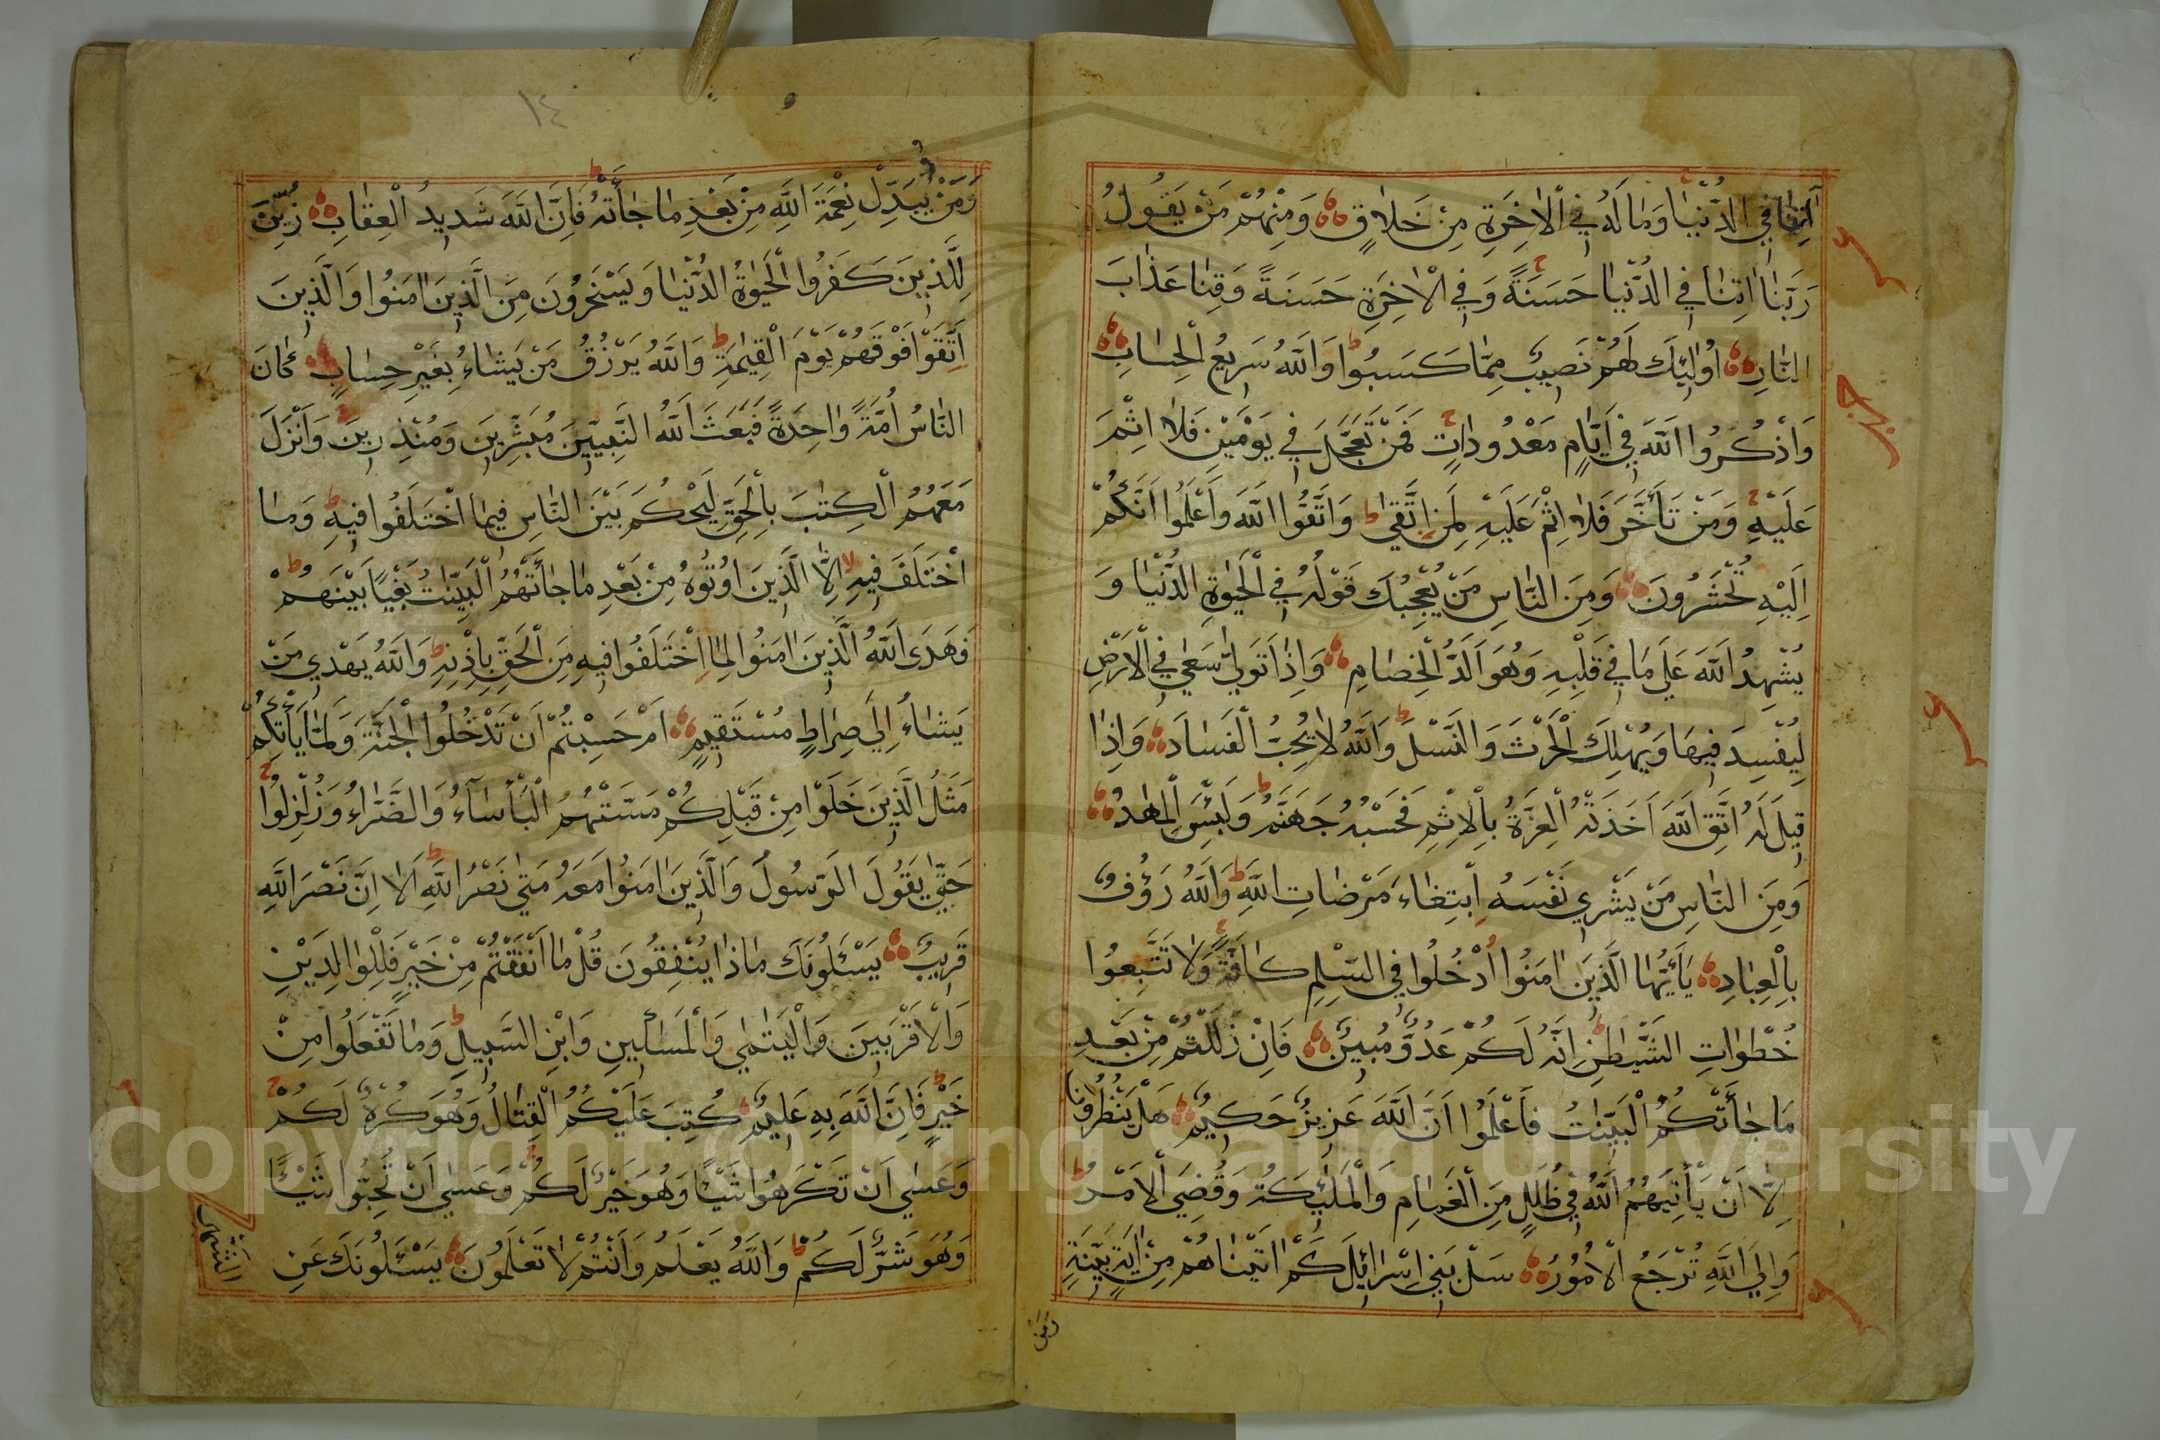 اٰتِنَا فِي الدُّنْيَا وَمَا لَهُ فِي الْاٰخِرَةِ مِنْ خَلَاقٍ وَمِنْهُمْ مَنْ يَقُولُ
رَبَّنَا اٰتِنَا فِي الدُّنْيَا حَسَنَةً وَفِي الْاٰخِرَةِ حَسَنَةً وَقِنَا عَذَابَ
النَّارِ اُولٰئِكَ لَهُمْ نَصِيبٌ مِمَّا كَسَبُوا وَاللّٰهُ سَرِيعُ الْحِسَابِ
وَاذْكُرُوا اللّٰهَ فِي اَيَّامٍ مَعْدُودَاتٍ فَمَنْ تَعَجَّلَ فِي يَوْمَيْنِ فَلَا اِثْمَ
عَلَيْهِ وَمَنْ تَأَخَّرَ فَلَا اِثْمَ عَلَيْهِ لِمَنِ اتَّقٰى وَاتَّقُوا اللّٰهَ وَاعْلَمُوا اَنَّكُمْ
اِلَيْهِ تُحْشَرُونَ وَمِنَ النَّاسِ مَنْ يُعْجِبُكَ قَوْلُهُ فِي الْحَيٰوةِ الدُّنْيَا وَ
يُشْهِدُ اللّٰهَ عَلٰى مَا فِي قَلْبِهِ وَهُوَ اَلَدُّ الْخِصَامِ وَاِذَا تَوَلّٰى سَعٰى فِي الْاَرْضِ
لِيُفْسِدَ فِيهَا وَيُهْلِكَ الْحَرْثَ وَالنَّسْلَ وَاللّٰهُ لَا يُحِبُّ الْفَسَادَ وَاِذَا
قِيلَ لَهُ اتَّقِ اللّٰهَ اَخَذَتْهُ الْعِزَّةُ بِالْاِثْمِ فَحَسْبُهُ جَهَنَّمُ وَلَبِئْسَ الْمِهَادُ
وَمِنَ النَّاسِ مَنْ يَشْرِي نَفْسَهُ ابْتِغَاءَ مَرْضَاتِ اللّٰهِ وَاللّٰهُ رَؤُفٌ
بِالْعِبَادِ يَاأَيُّهَا الَّذِينَ اٰمَنُوا ادْخُلُوا فِي السِّلْمِ كَافَّةً وَلَا تَتَّبِعُوا
خُطُوَاتِ الشَّيْطٰنِ اِنَّهُ لَكُمْ عَدُوٌّ مُبِينٌ فَاِنْ زَلَلْتُمْ مِنْ بَعْدِ
مَا جَاۤءَتْكُمُ الْبَيِّنَاتُ فَاعْلَمُوا اَنَّ اللّٰهَ عَزِيزٌ حَكِيمٌ هَلْ يَنْظُرُونَ
اِلَّا اَنْ يَأْتِيَهُمُ اللّٰهُ فِي ظُلَلٍ مِنَ الْغَمَامِ وَالْمَلٰئِكَةُ وَقُضِيَ الْاَمْرُ
وَاِلَى اللّٰهِ تُرْجَعُ الْاُمُورُ سَلْ بَنِي اِسْرَائِلَ كَمْ اٰتَيْنَاهُمْ مِنْ اٰيَةٍ بَيِّنَةٍ
وَمَنْ
١٤
وَمَنْ يُبَدِّلْ نِعْمَةَ اللّٰهِ مِنْ بَعْدِ مَا جَاۤءَتْهُ فَاِنَّ اللّٰهَ شَدِيدُ الْعِقَابِ زُيِّنَ
لِلَّذِينَ كَفَرُوا الْحَيٰوةُ الدُّنْيَا وَيَسْخَرُونَ مِنَ الَّذِينَ اٰمَنُوا وَالَّذِينَ
اتَّقَوْا فَوْقَهُمْ يَوْمَ الْقِيٰمَةِ وَاللّٰهُ يَرْزُقُ مَنْ يَشَاءُ بِغَيْرِ حِسَابٍ كَانَ
النَّاسُ اُمَّةً وَاحِدَةً فَبَعَثَ اللّٰهُ النَّبِيِّينَ مُبَشِّرِينَ وَمُنْذِرِينَ وَاَنْزَلَ
مَعَهُمُ الْكِتٰبَ بِالْحَقِّ لِيَحْكُمَ بَيْنَ النَّاسِ فِيمَا اخْتَلَفُوا فِيهِ وَمَا
اخْتَلَفَ فِيهِ اِلَّا الَّذِينَ اُوتُوهُ مِنْ بَعْدِ مَا جَاۤءَتْهُمُ الْبَيِّنَاتُ بَغْيًا بَيْنَهُمْ
فَهَدَى اللّٰهُ الَّذِينَ اٰمَنُوا لِمَا اخْتَلَفُوا فِيهِ مِنَ الْحَقِّ بِاِذْنِهِ وَاللّٰهُ يَهْدِي مَنْ
يَشَاءُ اِلٰى صِرَاطٍ مُسْتَقِيمٍ اَمْ حَسِبْتُمْ اَنْ تَدْخُلُوا الْجَنَّةَ وَلَمَّا يَأْتِكُمْ
مَثَلُ الَّذِينَ خَلَوْا مِنْ قَبْلِكُمْ مَسَّتْهُمُ الْبَأْسَاءُ وَالضَّرَّاءُ وَزُلْزِلُوا
حَتّٰى يَقُولَ الرَّسُولُ وَالَّذِينَ اٰمَنُوا مَعَهُ مَتٰى نَصْرُ اللّٰهِ اَلَا اِنَّ نَصْرَ اللّٰهِ
قَرِيبٌ يَسْئَلُونَكَ مَاذَا يُنْفِقُونَ قُلْ مَا اَنْفَقْتُمْ مِنْ خَيْرٍ فَلِلْوَالِدَيْنِ
وَالْاَقْرَبِينَ وَالْيَتٰمٰى وَالْمَسٰكِينِ وَابْنِ السَّبِيلِ وَمَا تَفْعَلُوا مِنْ
خَيْرٍ فَاِنَّ اللّٰهَ بِهِ عَلِيمٌ كُتِبَ عَلَيْكُمُ الْقِتَالُ وَهُوَ كُرْهٌ لَكُمْ
وَعَسٰى اَنْ تَكْرَهُوا شَيْئًا وَهُوَ خَيْرٌ لَكُمْ وَعَسٰى اَنْ تُحِبُّوا شَيْئًا
وَهُوَ شَرٌّ لَكُمْ وَاللّٰهُ يَعْلَمُ وَاَنْتُمْ لَا تَعْلَمُونَ يَسْئَلُونَكَ عَنِ
الشَّهْرِ
Copyright © King Saud University